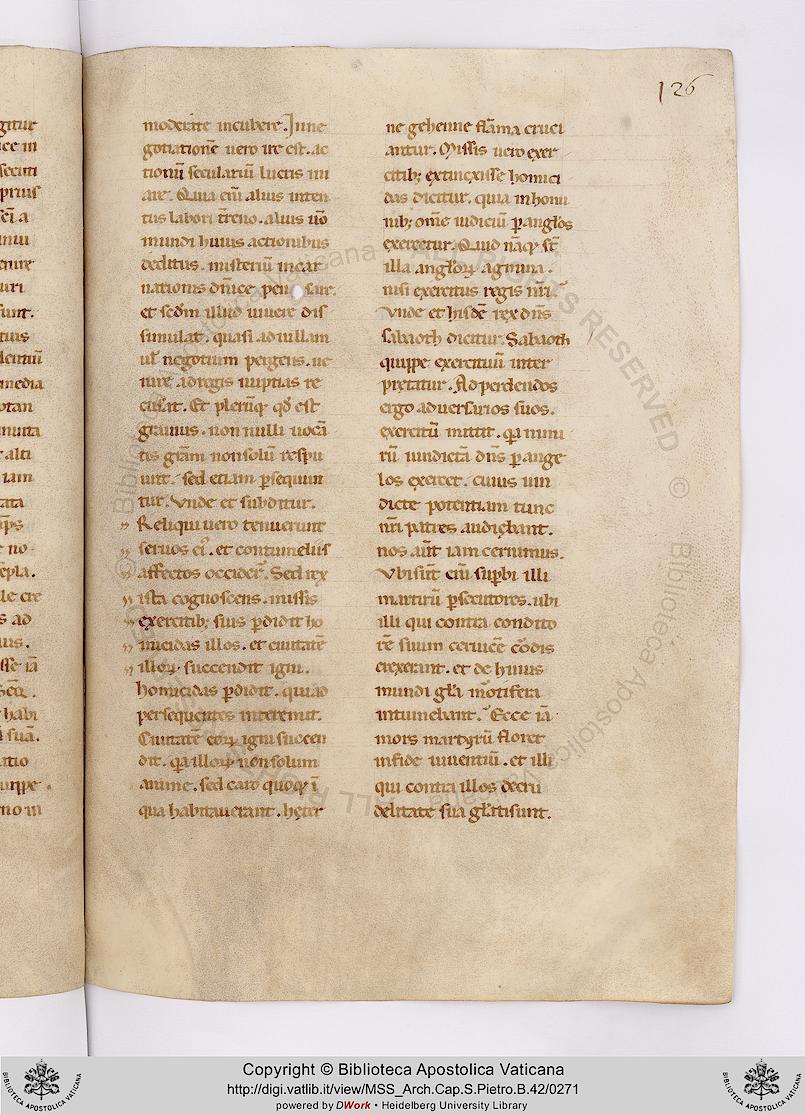 126
moderate incubere. In ne
gotiatione vero ire est. ac
tionū seculariū lucris ini
are. Quia eni alius inten
tus labori t̄reno. alius u̅o
mundi huius actionibus
deditus. misteriū incar
nationis dn̄ice pensare.
et scdm illud uiuere dis
simulat. quasi ad uillam
ul̄ negotium pergens. ue
nire ad regis nuptias re
cusat. Et plerūq; qd̄ est
grauius. non nulli uocā
tis grām non solū respu
unt. sed etiam p̄sequun
tur. Unde et subditur.
Reliqui uero tenuerunt
seruos ei᾿. et contumeliis
affectos occider̄. Sed rex
ista cognoscens. missis
exercitib; suis p̄didit ho
micidas illos. et ciuitatē
illoꝝ succendit igni.
homicidas p̄didit. quia
persequentes interemit.
Ciuitatē eoꝝ igni succen
dit. q̄a illoꝝ non solum
anime. sed caro quoq; ī
qua habitauerant. heter
ne gehenne flāma cruci
antur. Missis uero exer
citib; extinxisse homici
das dicitur. quia in homi
nib; om̄e iudiciū p̄ anglos
exercetur. Quid nāq; s̄t
illa angloꝝ agmina.
nisi exercitus regis nr̄i.
Unde et hisdē rex dn̄s
sabaoth dicitur. Sabaoth
quippe exercituū inter
pretatur. Ad perdendos
ergo aduersarios suos.
exercitū mittit. q̄a nimi
rū uindictā dn̄s p̄ ange
los exercet. cuius uin
dicte potentiam tunc
nr̄i patres audiebant.
nos aūt iam cernimus.
Ubi sunt eni supbi illi
martirū p̄secutores. ubi
illi qui contra condito
rē suum ceruicē cordis
erexerant. et de huius
mundi gl̄a mortifera
intumebant. Ecce iā
mors martyrū floret
in fide uiuentiū. et illi
qui contra illos decru
delitate sua glāti sunt.
Copyright © Biblioteca Apostolica Vaticana
http://digi.vatlib.it/view/MSS_Arch.Cap.S.Pietro.B.42/0271
powered by DWork • Heidelberg University Library